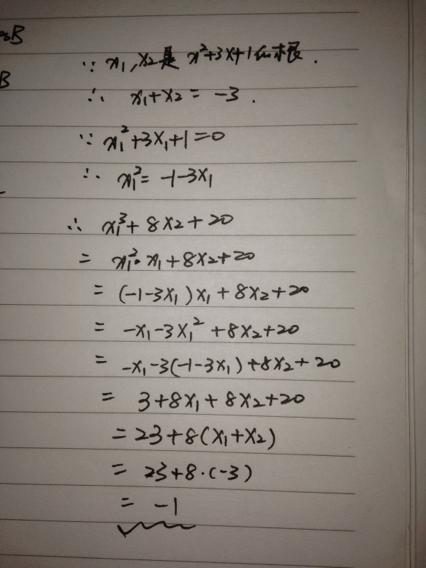 B
B
∵ x₁, x₂ 是 x²+3x+1 的根.
∴ x₁+x₂ = -3.
∵ x₁²+3x₁+1=0
∴ x₁² = -1-3x₁
∴ x₁³+8x₂+20
= x₁²·x₁+8x₂+20
= (-1-3x₁)x₁+8x₂+20
= -x₁-3x₁²+8x₂+20
= -x₁-3(-1-3x₁)+8x₂+20
= 3+8x₁+8x₂+20
= 23+8(x₁+x₂)
= 23+8·(-3)
= -1